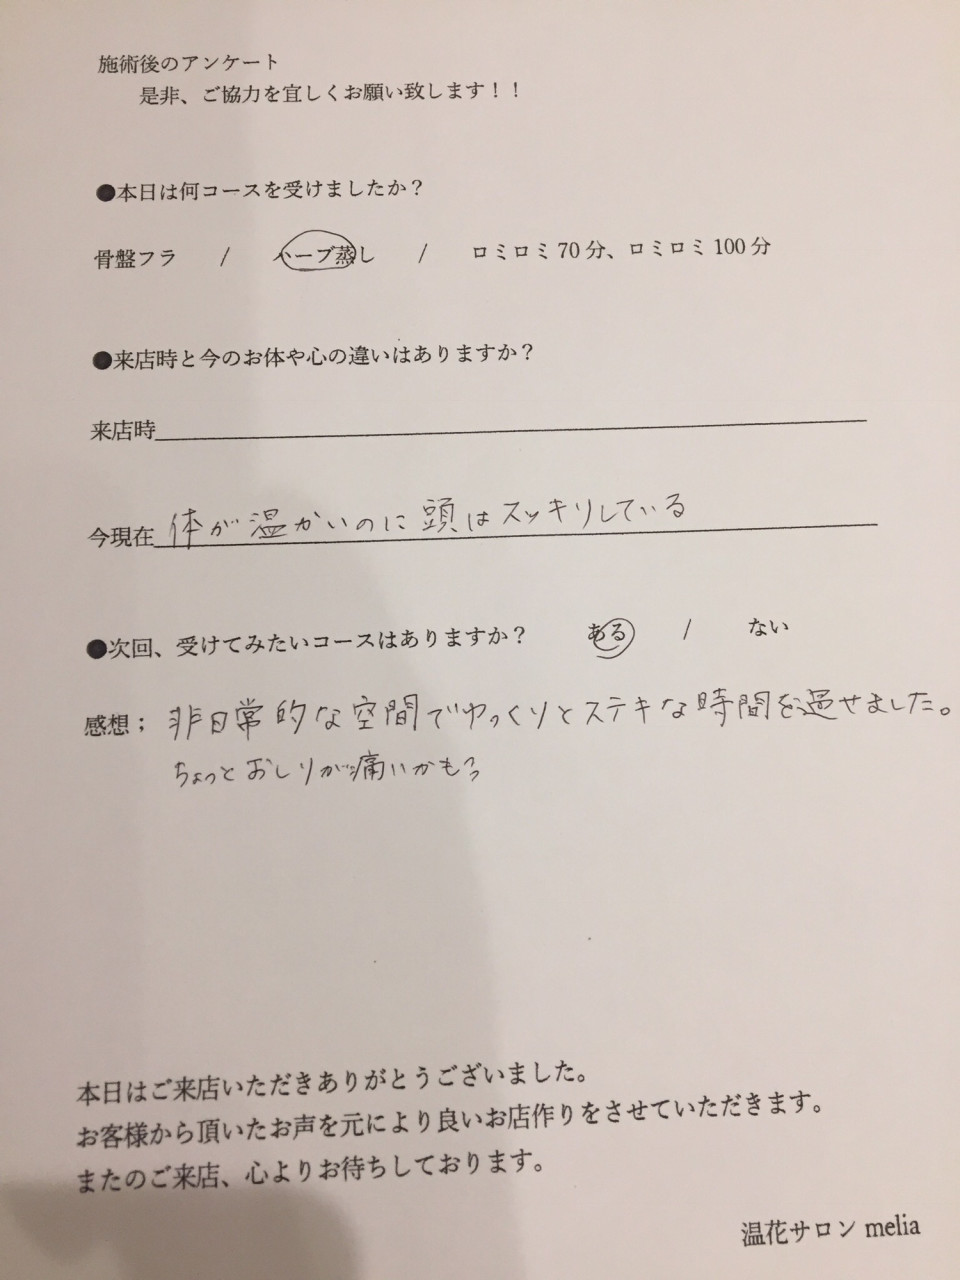 施術後のアンケート
是非、ご協力を宜しくお願い致します！！
●本日は何コースを受けましたか？
骨盤フラ / ハーブ蒸し / ロミロミ70分、ロミロミ100分
●来店時と今のお体や心の違いはありますか？
来店時
今現在 体が温かいのに頭はスッキリしている
●次回、受けてみたいコースはありますか？ ある / ない
感想； 非日常的な空間でゆっくりとステキな時間を過せました。
ちょっとおしりが痛いかも？
本日はご来店いただきありがとうございました。
お客様から頂いたお声を元により良いお店作りをさせていただきます。
またのご来店、心よりお待ちしております。
温花サロン melia